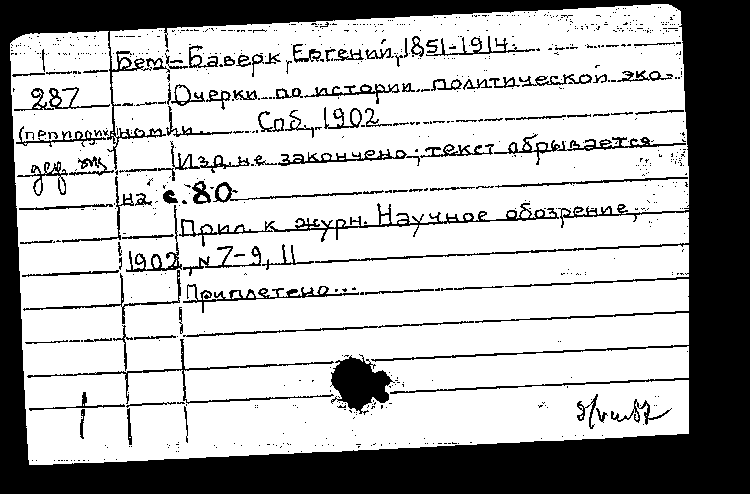 1
Бем-Баверк, Евгений, 1851-1914.
287
Очерки по истории политической эко-
(периодика)
номии. Спб., 1902
Изд. не закончено; текст обрывается
на с. 80
Прил. к журн. Научное обозрение,
1902, N 7-9, 11
Приплетено...